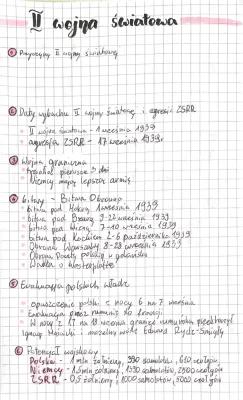 II wojna światowa
① Przyczyny II wojny światowej
② Daty wybuchu II wojny światowej i agresji ZSRR
- II wojna światowa - 1 września 1939
- agresja ZSRR - 17 września 1939
③ Wojna graniczna
- pierwsze 3 dni
- Niemcy mają lepszą armię
④ bitwy - Bitwa Obronna
- bitwa pod Mokrą 1 września 1939
- bitwa nad Bzurą 9-22 września 1939
- bitwa pod Wizną 7-10 września 1939
- bitwa pod Kockiem 2-6 października 1939
- Obrona Warszawy 8-28 września 1939
- Obrona Poczty polskiej w gdańsku
- Walka o Westerplatte
⑤ Ewakuacja polskich władz
- opuszczenie polski z nocy 6 na 7 września
- Ewakuacja przez rumunię do
- W nocy z 17 na 18 września granice rumuńską przekroczył
Ignacy Mościcki i wódz Edward Rydz-Śmigły
⑥ Potencjał wojskowy
Polska - 1 mln żołnierzy, samolotów, czołgów
Niemcy - mln żołnierzy, samolotów, czołgów
ZSRR - żołnierzy, samolotów, czołgów